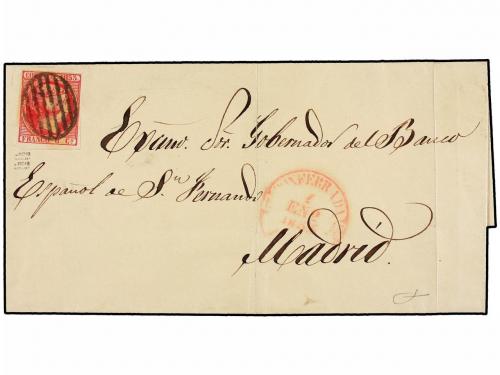 FRANCO
Exmo. Sõr. Gobernador del Banco
Español de Sn. Fernando
PONFERRADA
1
ENE
Madrid.